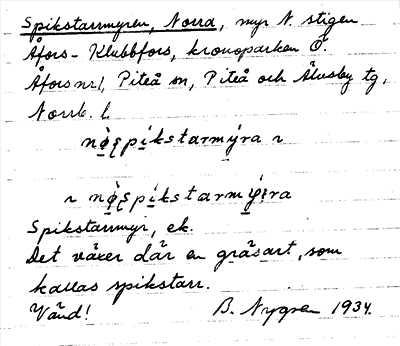 Spikstarrmyren, Norra, myr N. stigen
Åfors - Klubbfors, kronoparken Ö.
Åfors nr 1, Piteå sn, Piteå och Älvsby tg,
Norrb. l.
Spikstarrmyr, ek.
Det växer där en gräsart, som
kallas spikstarr.
Vänd! B. Nygren 1934.